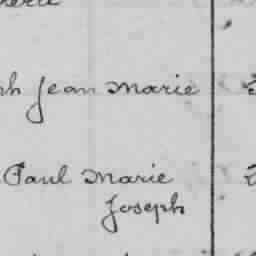 ph Jean Marie
Paul Marie
Joseph